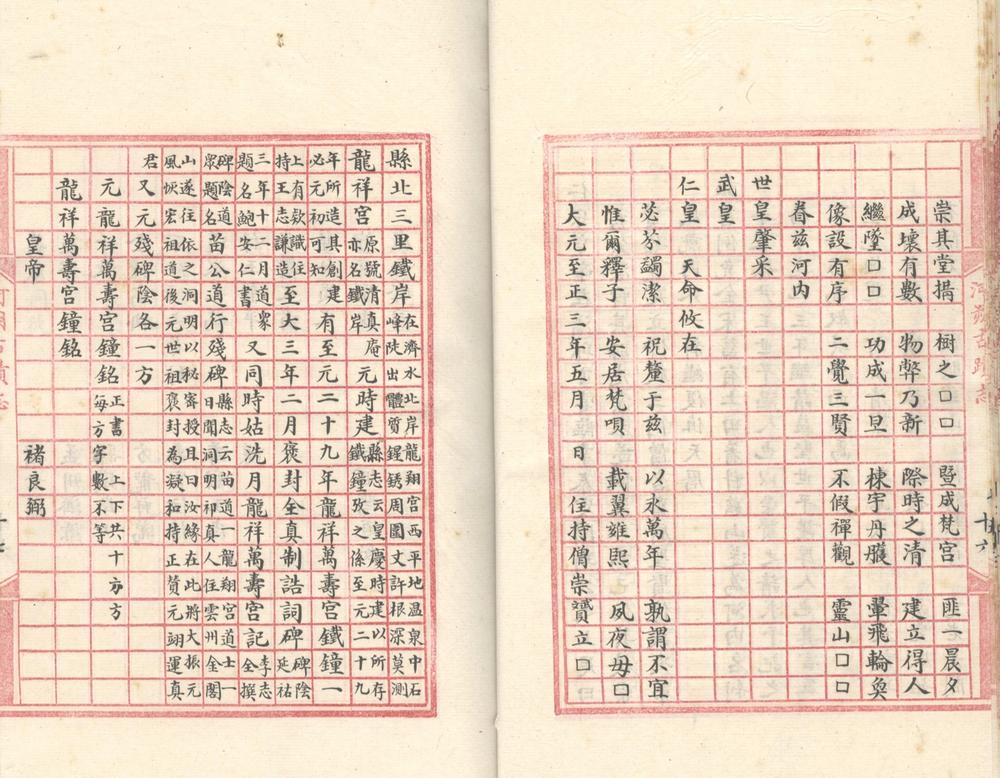 崇其堂搆　樹之口口　暨成梵宮　匪一晨夕
成壞有數　物弊乃新　際時之清　建立得人
繼墜口口　功成一旦　棟宇丹雘　翬飛輪奐
像設有序　二覺三賢　不假禪觀　靈山口口
眷兹河内
世皇肇釆
武皇
仁皇　天命攸在
苾芬蠲潔　祝釐于兹　以永萬年　孰謂不宜
惟爾釋子　安居梵唄　載翼雍熙　夙夜毋口
大元至正三年五月　日　住持僧崇贇立
十六
縣北三里鐵岸峰在濟水北岸龍翔宮西平地温泉中石陡出體質鍟銹周圍文許根深莫測
龍祥宮原號清真庵亦名鐵岸元時建縣志云皇慶時建以所存鐵鐘攷之係至元二十九
年所造具創建必元初可知有至元二十九年龍祥萬壽宮鐵鐘一
上有欵識住持王志謙造至大三年二月褒封全真制誥詞碑碑陰延祐
三年十二月道眾題名鮑安仁書又同時姑洗月龍祥萬壽宮記李志全撰
碑陰道眾題名苗公道行殘碑縣志云苗道一龍翔宮道士一日聞洞明祁真人住雲州金閣
山遂往依之洞明以秘寄授且曰汝緣在此將大振元風恢宏祖道後元世祖褒封為凝和持正贊元翊運真
君又元殘碑陰各一方
元龍祥萬壽宮鐘銘正書上下共十方方每方字數不等
龍祥萬壽宮鐘銘
皇帝　褚良弼